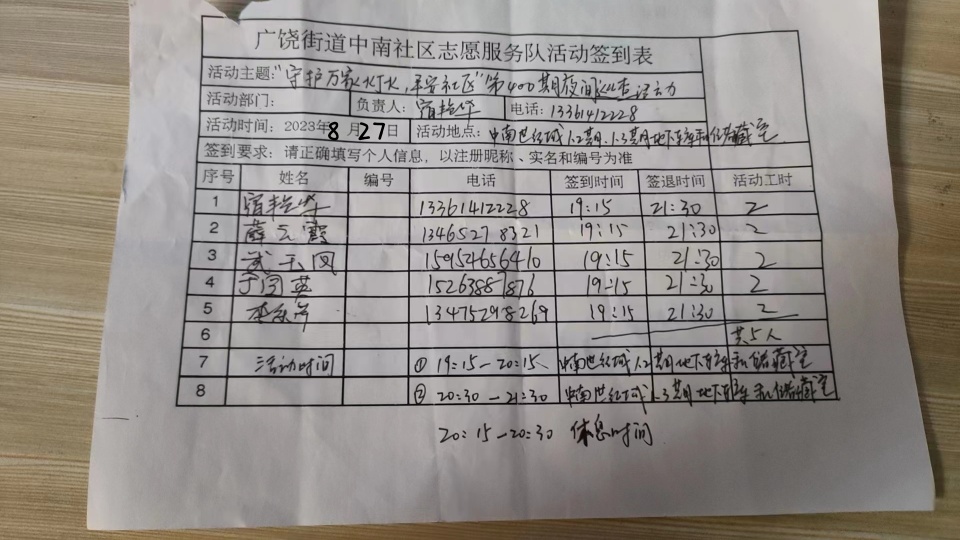 广饶街道中南社区志愿服务队活动签到表
活动主题："守护万家灯火，平安社区"第400期夜间巡查活动
活动部门： 负责人：宿艳华 电话：13361412228
活动时间：2023年8月27日 活动地点：中南世纪城1.2期、1.3期地下车库和储藏室
签到要求：请正确填写个人信息，以注册昵称、实名和编号为准
序号 姓名 编号 电话 签到时间 签退时间 活动工时
1 宿艳华 13361412228 19:15 21:30 2
2 薛云霞 13465278321 19:15 21:30 2
3 武玉凤 15952656410 19:15 21:30 2
4 于国英 15263887876 19:15 21:30 2
5 13475298269 19:15 21:30 2
6 共5人
7 活动时间 ① 19:15—20:15 中南世纪城1.2期地下车库和储藏室
8 ② 20:30—21:30 中南世纪城1.3期地下车库和储藏室
20:15—20:30 休息时间